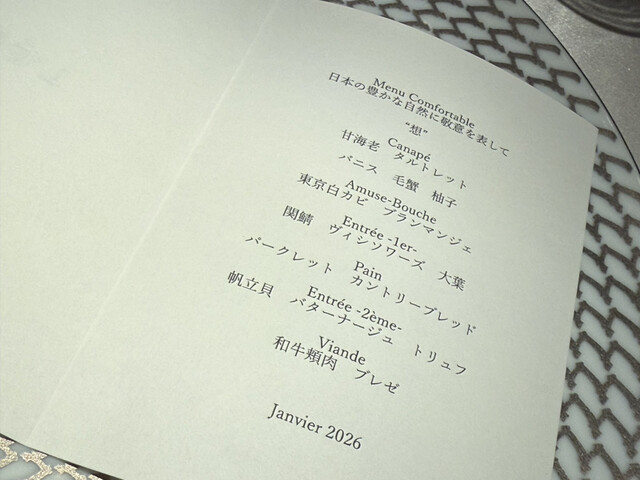 Menu Comfortable
日本の豊かな自然に敬意を表して
“想”
Canapé
甘海老 タルトレット
パニス 毛蟹 柚子
Amuse-Bouche
東京白カビ ブランマンジェ
Entrée -1er-
関鯖 ヴィシソワーズ 大葉
Pain
パークレット カントリーブレッド
Entrée -2ème-
帆立貝 バターナージュ トリュフ
Viande
和牛頬肉 ブレゼ
Janvier 2026